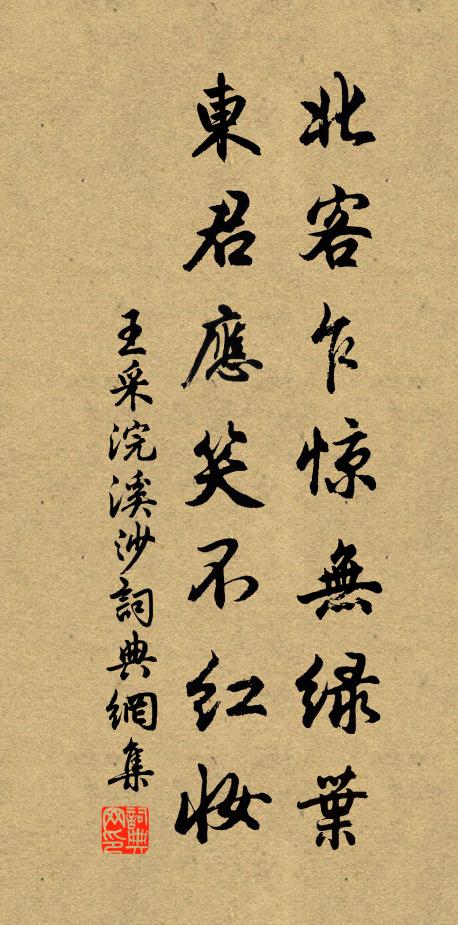 北客乍惊無緑葉
東君應笑不红妆
王采浣溪沙詞典網集
詞典网印